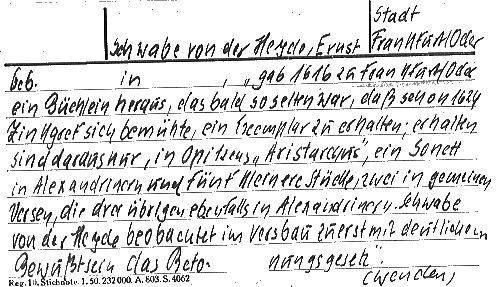 Stadt
Schwabe von der Heyde, Ernst Frankfurt/Oder
Geb. in , „gab 1616 zu Frankfurt/Oder
ein Büchlein heraus, das bald so selten war, daß schon 1624
Zinkgref sich bemühte, ein Exemplar zu erhalten; erhalten
sind daraus nur, in Opitzens „Aristarchus", ein Sonett
in Alexandrinern und fünf kleinere Stücke, zwei in gemeinen
Versen, die drei übrigen ebenfalls in Alexandrinern. Schwabe
von der Heyde beobachtet im Versbau zuerst mit deutlichem
Bewußtsein das Beto- nungsgesetz".
Reg. 10. Stichnote. 1. 50. 232000. A. 803. S. 4062
(wenden)